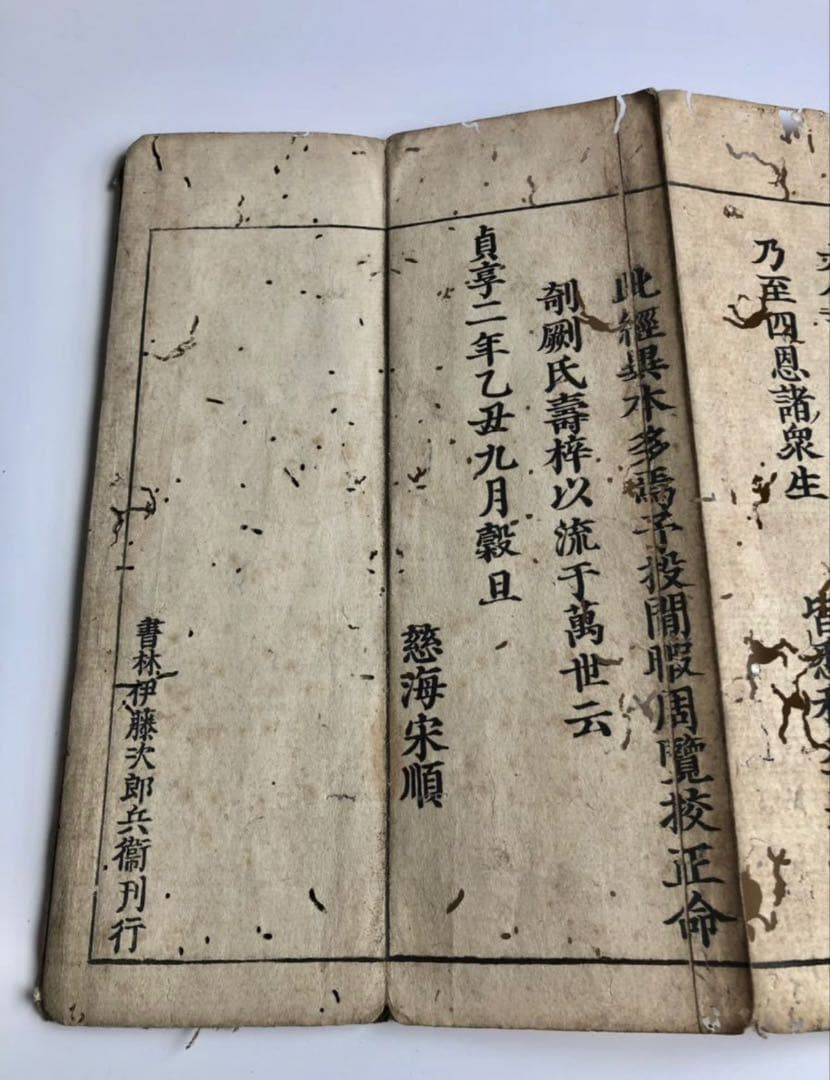 乃至四恩諸衆生
皆悉
此經異本多焉予投閒暇周覽挍正命
剞劂氏壽梓以流于萬世云
貞享二年乙丑九月穀旦
慈海宋順
書林伊藤次郎兵衞刊行